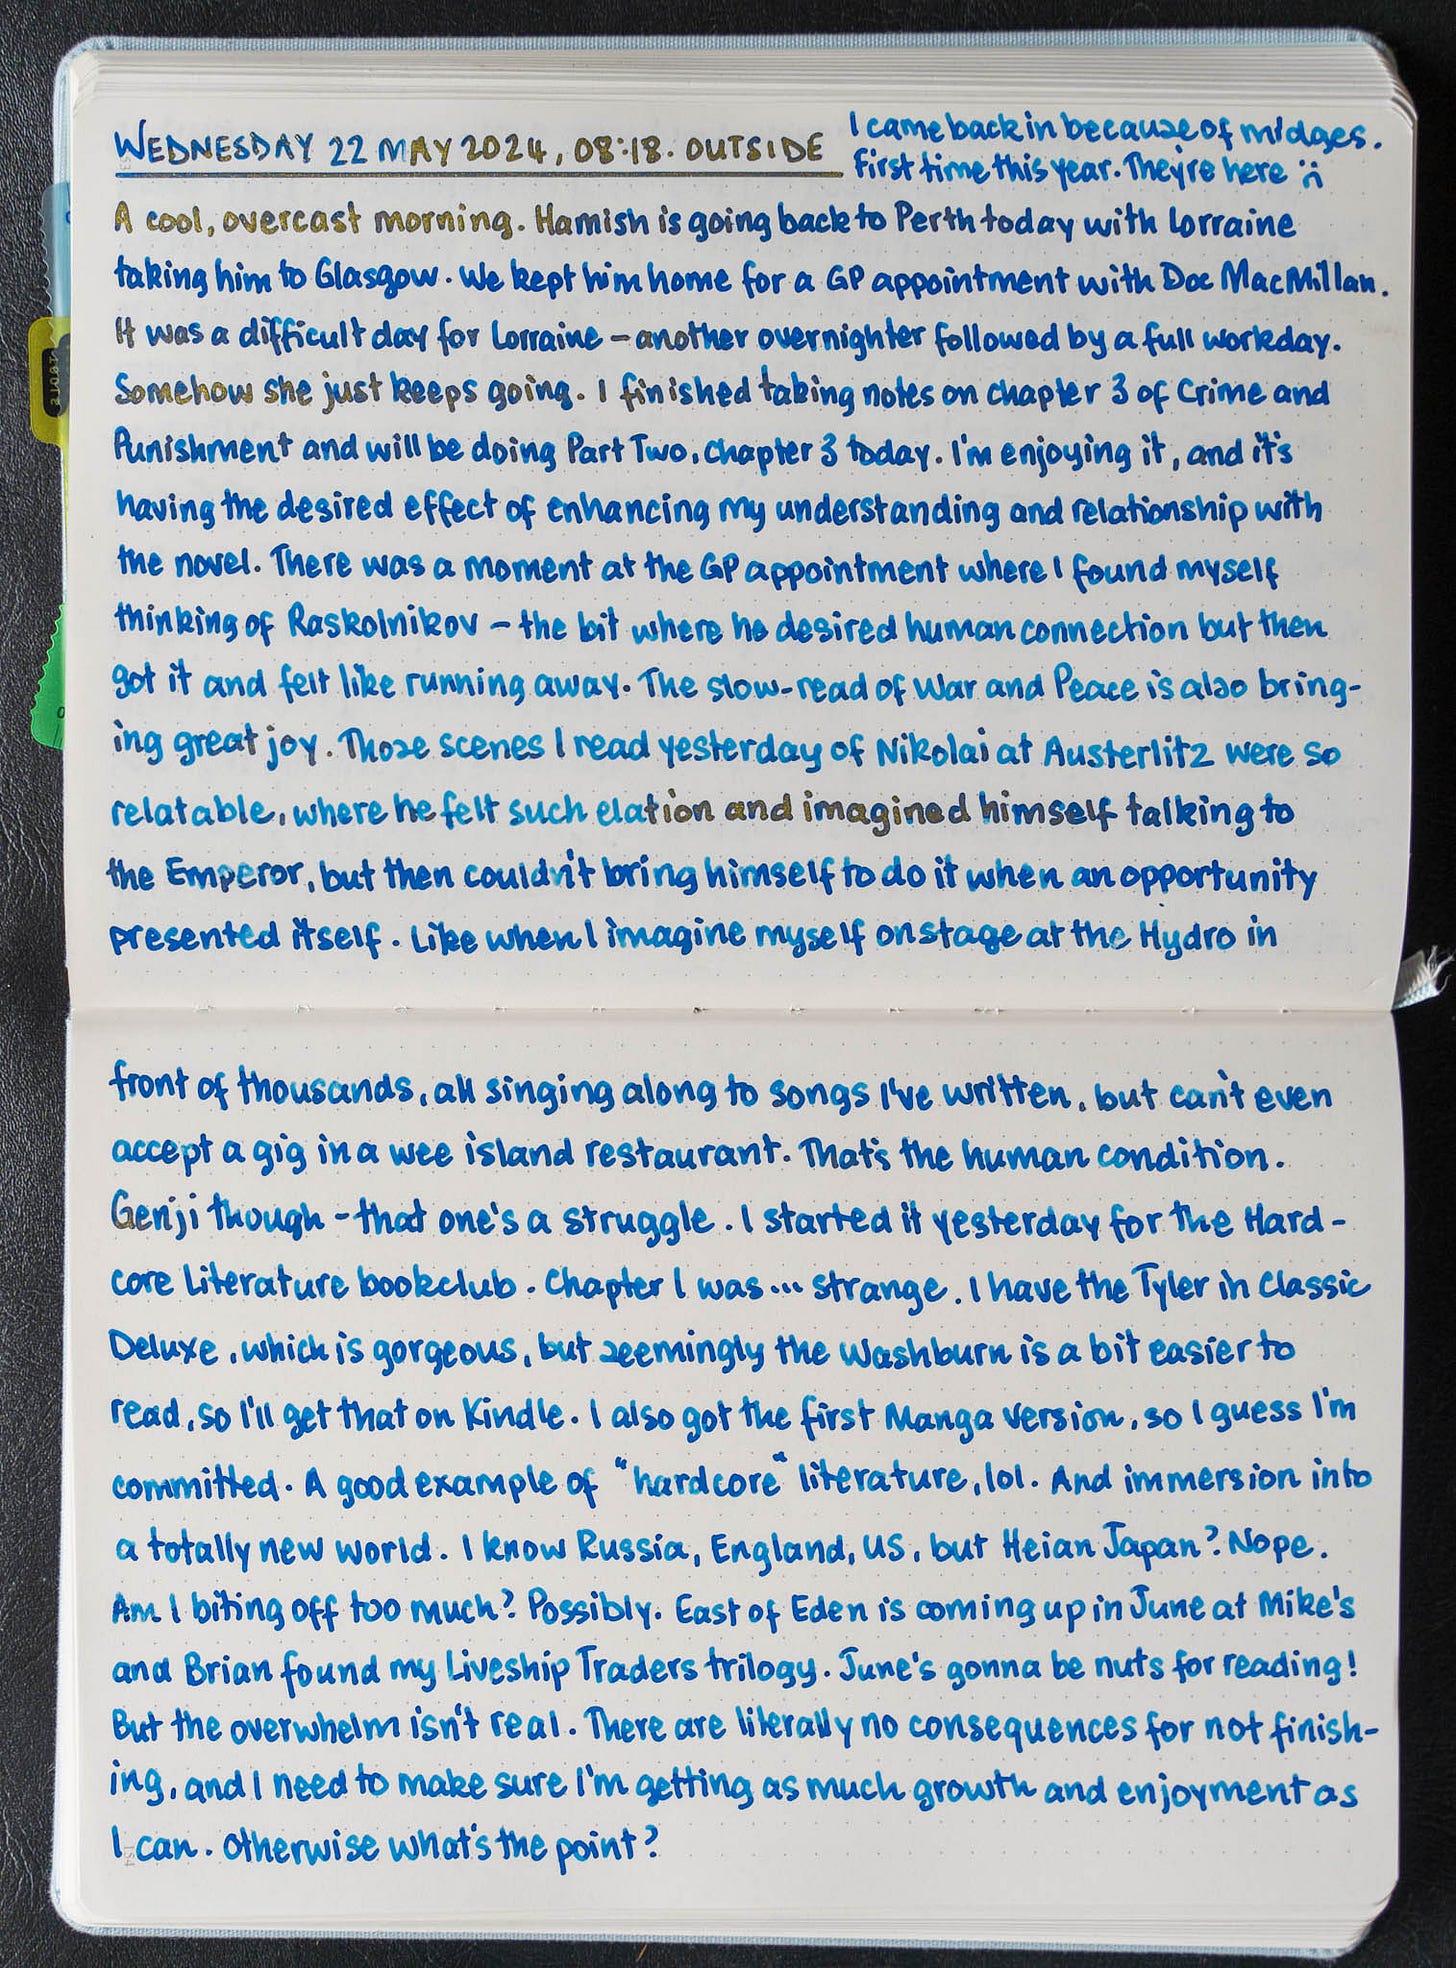 WEDNESDAY 22 MAY 2024, 08:18. OUTSIDE
I came back in because of midges.
First time this year. They're here :(
A cool, overcast morning. Hamish is going back to Perth today with Lorraine
taking him to Glasgow. We kept him home for a GP appointment with Doc MacMillan.
It was a difficult day for Lorraine – another overnighter followed by a full workday.
Somehow she just keeps going. I finished taking notes on chapter 3 of Crime and
Punishment and will be doing Part Two, chapter 3 today. I'm enjoying it, and it's
having the desired effect of enhancing my understanding and relationship with
the novel. There was a moment at the GP appointment where I found myself
thinking of Raskolnikov – the bit where he desired human connection but then
got it and felt like running away. The slow-read of War and Peace is also bring-
ing great joy. Those scenes I read yesterday of Nikolai at Austerlitz were so
relatable, where he felt such elation and imagined himself talking to
the Emperor, but then couldn't bring himself to do it when an opportunity
presented itself. Like when I imagine myself on stage at the Hydro in
front of thousands, all singing along to songs I've written, but can't even
accept a gig in a wee island restaurant. That's the human condition.
Genji though – that one's a struggle. I started it yesterday for the Hard-
core Literature bookclub. Chapter 1 was... strange. I have the Tyler in Classic
Deluxe, which is gorgeous, but seemingly the Washburn is a bit easier to
read, so I'll get that on Kindle. I also got the first Manga version, so I guess I'm
committed. A good example of "hardcore" literature, lol. And immersion into
a totally new world. I know Russia, England, US, but Heian Japan? Nope.
Am I biting off too much? Possibly. East of Eden is coming up in June at Mike's
and Brian found my Liveship Traders trilogy. June's gonna be nuts for reading!
But the overwhelm isn't real. There are literally no consequences for not finish-
ing, and I need to make sure I'm getting as much growth and enjoyment as
I can. Otherwise what's the point?
154